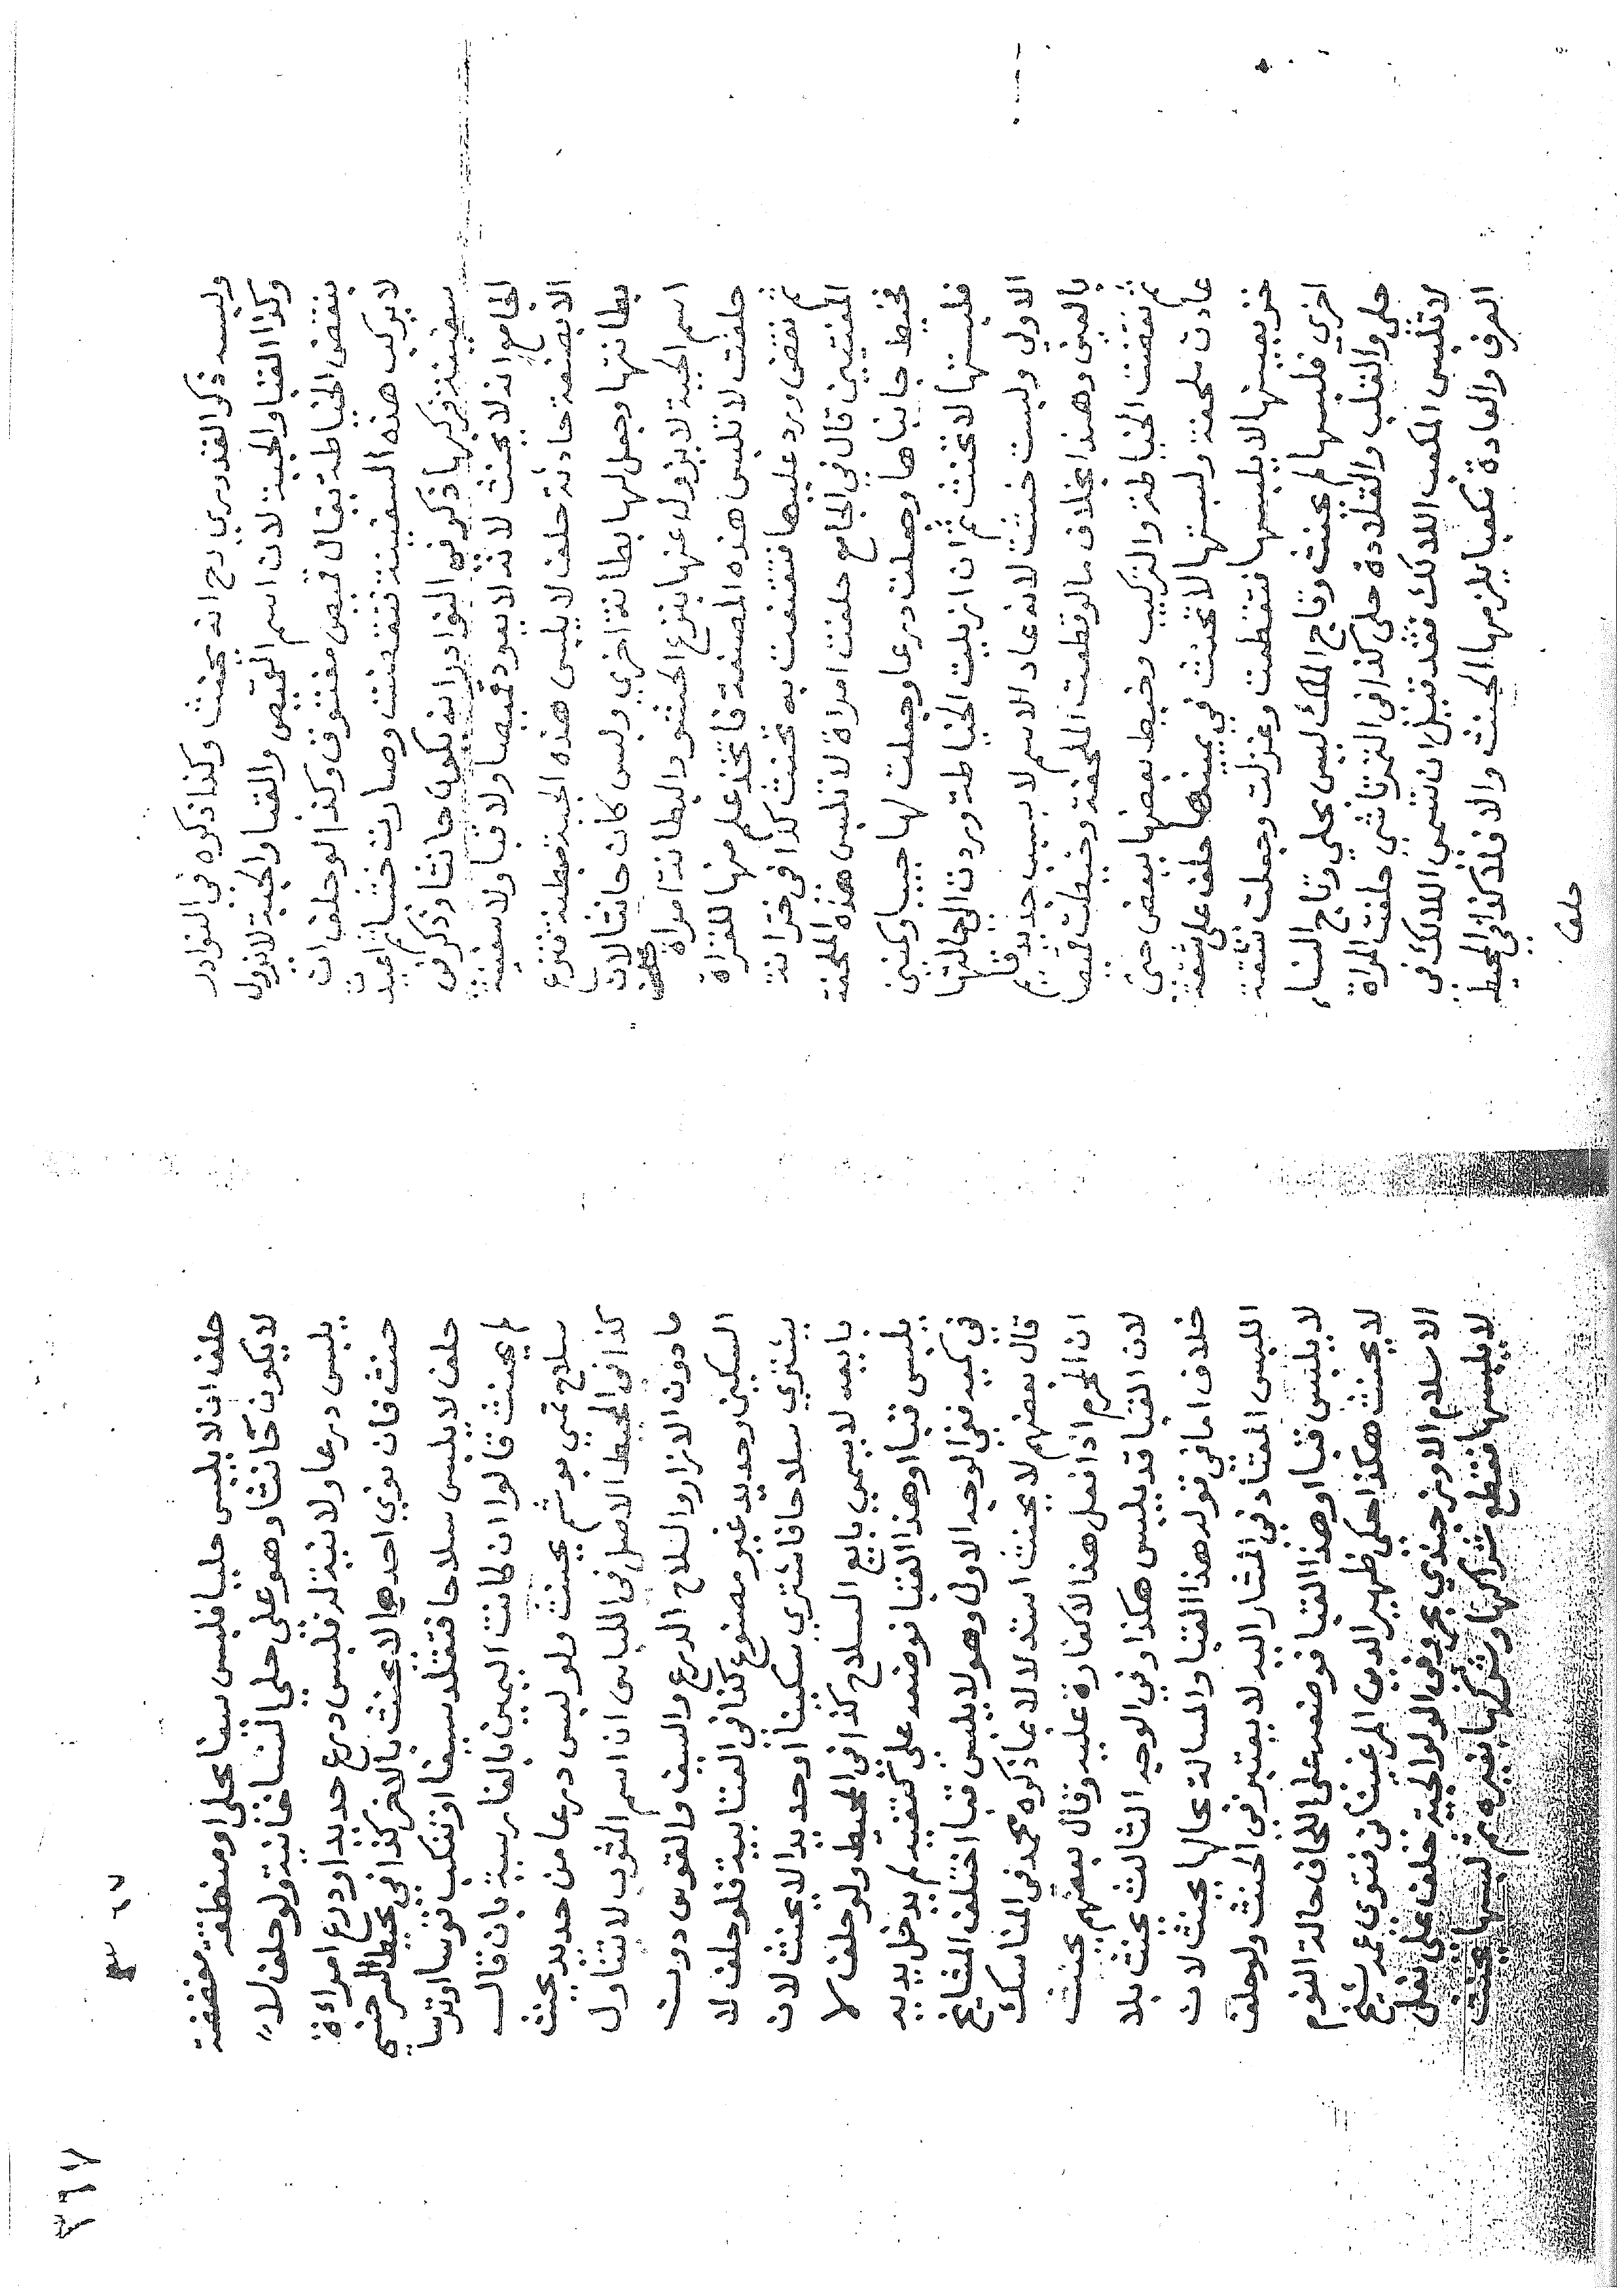 ولبسه ذكر القدوري رح انه يحنث وكذا ذكره في النوادر
وكذا القبا والجبة لان اسم القميص والقبا والجبة لا يزول
بنقض الخياطة يقال قميص مفتوق وكذا لو حلف ان
لا يركب هذه السفينة فنقضت وصارت خشبا ثم اعيدت
سفينة فركبها ذكر في النوادر انه يكون حانثا وذكر في
الجامع انه لا يحنث لانه لا يعود قميصا ولا قبا ولا سفينة
الا بصنعة حادثة حلف لا يلبس هذه الجبة مبطنة فنزع
بطانتها وجعل لها بطانة اخري ولبس كان حانثا لان
اسم الجبة لا يزول عنها بنزع الحشو والبطانة امراة
حلفت لا تلبس هذه المصنفة فاتخذ علم منها للغزاة
ثم نقض ورد عليها فتقنعت به تحنث كذا في خزانة
المفتيين قال في الجامع حلفت امراة لا تلبس هذه الملحفة
فخيط جانباها وجعلت درعا وجعلت لها جيبا وكمين
فلبستها لا تحنث ثم ان ازيلت الخياطة وردت الي حالتها
الاولي ولبست حنثت لانه عاد الاسم لا بسبب جديد قايم
بالعين وهذا بخلاف ما لو قطعت الملحفة وخيطت قميصا
ثم نقضت الخياطة والتركيب وخيط بعضها ببعض حتي
عادت ملحفة ولبستها لا تحنث في يمينها حلف علي شقة
خز بعينها لا يلبسها فنقضت وغزلت وجعلت شقة
اخري فلبسها لم يحنث وتاج الملك ليس بحلي وتاج النساء
حلي والقلب والقلادة حلي كذا في التمرتاشي حلفت المراة
لا تلبس المكعب اللالك فقد قيل ان تسمي اللالك في
العرف والعادة مكعبا يلزمها الحنث والا فلا كذا في المحيط
حلف
٣٦٧
٣٦٧
حلف ان لا يلبس حليا فلبس سيفا محلي او منطقة مفضضة
لا يكون حانثا وهو علي حلي النساء خانية ولو حلف لا
يلبس درعا ولا نية له فلبس درع حديد او درع امراة
حنث فان نوي احدهما لا يحنث بالاخر كذا في محيط السرخسي
حلف لا يلبس سلاحا فتقلد سيفا او تنكب قوسا او ترسا
لم يحنث قالوا ان كانت اليمين بالفارسية بان قال
سلاح نمي بوشم يحنث ولو لبس درعا من حديد يحنث
كذا في المحيط الاصل في اللباس ان اسم الثوب لا يتناول
ما دون الازار والسلاح الدرع والسيف والقوس دون
السكين وحديد غير مصنوع كذا في العتابية فلو حلف لا
يشتري سلاحا فاشتري سكينا او حديدا لا يحنث لان
بايعه لا يسمي بايع السلاح كذا في المحيط ولو حلف لا
يلبس قبا او هذا القبا فوضعه علي كتفيه لم يدخل يديه
في كميه ففي الوجه الاول وهو لا يلبس قبا اختلف المشايخ
قال بعضهم لا يحنث استدلالا بما ذكره محمد في المناسك
ان المحرم اذا فعل هذا لا كفارة عليه وقال بعضهم يحنث
لان القبا قد يلبس هكذا وفي الوجه الثالث يحنث بلا
خلاف اما في قوله هذا القبا والمسالة بحالها يحنث لان
اللبس المعتاد في المشار اليه لا يعتبر في الحنث ولو حلف
لا يلبس قبا او هذا القبا فوضعه علي اللحاف حالة النوم
لا يحنث هكذا حكي ظهير الدين المرغيناني فتوي عمه شيخ
الاسلام الاوزجندي بحروفه الولوالجية حلف علي نعل
لا يلبسها فقطع شراكها وشركها بغيره ثم لبسها يحنث